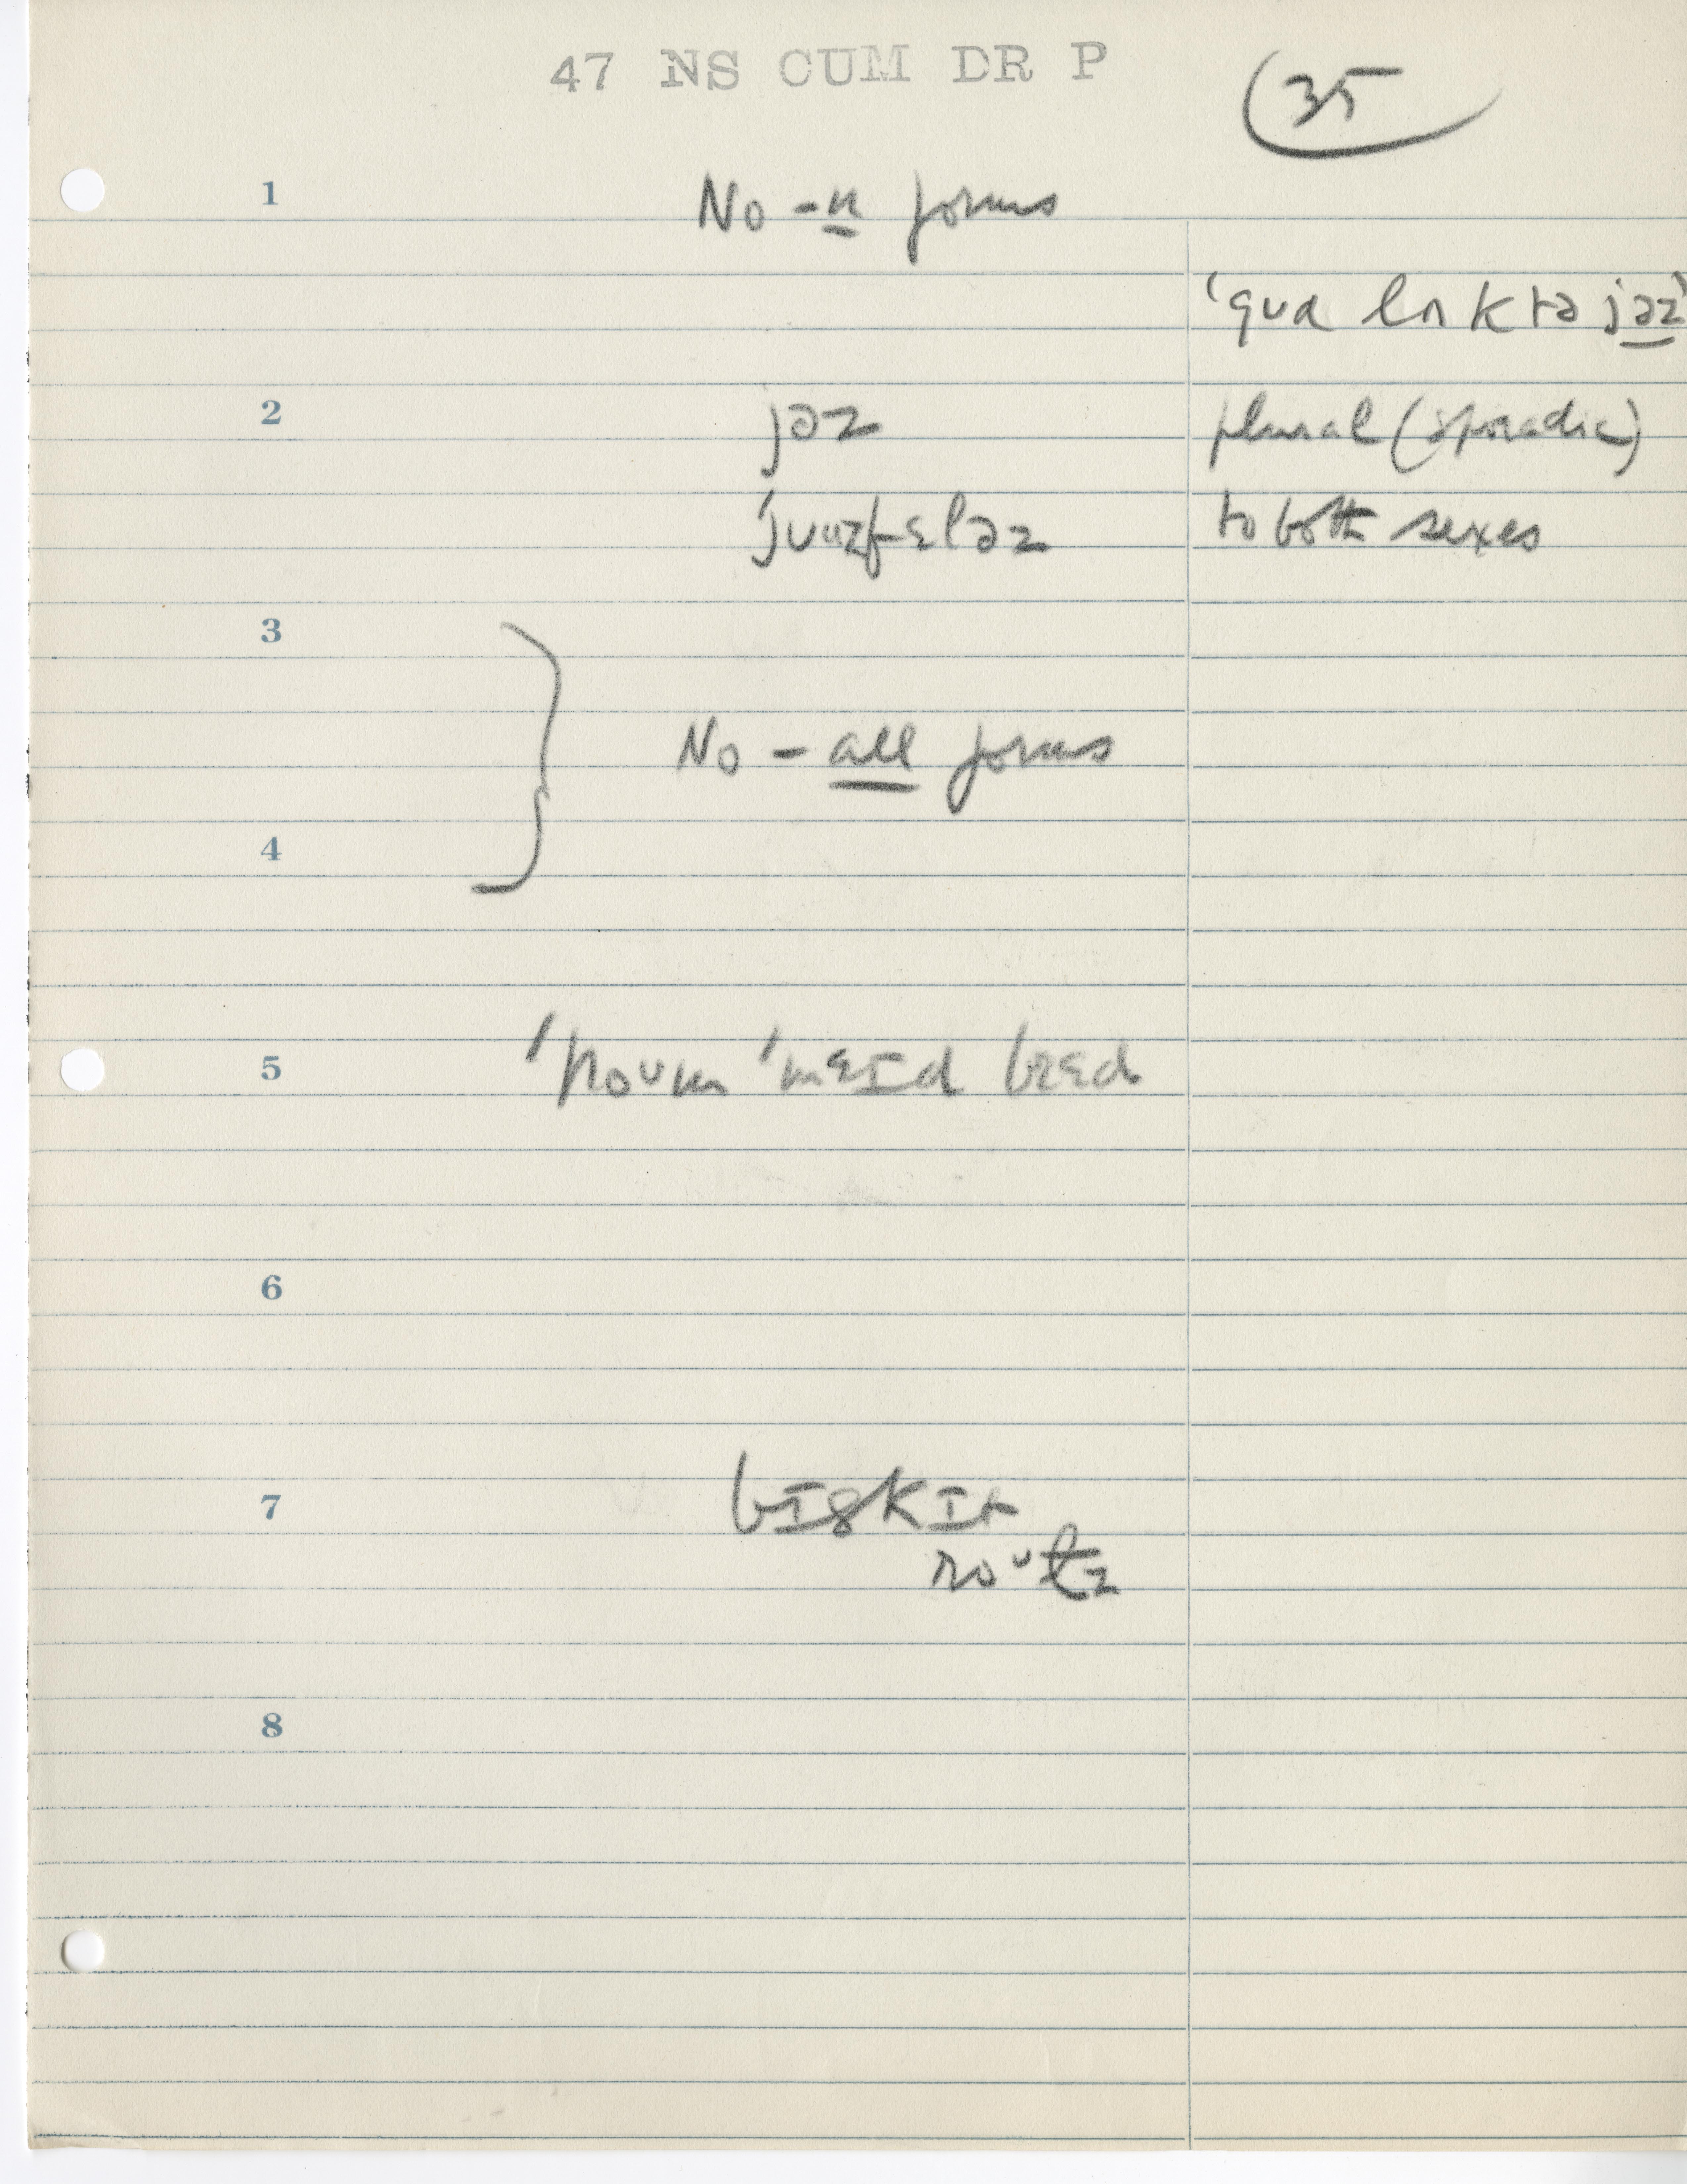 47 NS CUM DR P
35
1 No -n forms
2 jəz plural (sporadic)
to both sexes
3
No - all forms
4
5 'houm 'mɛɪd brɛd
6
7 bɪskɪt
8